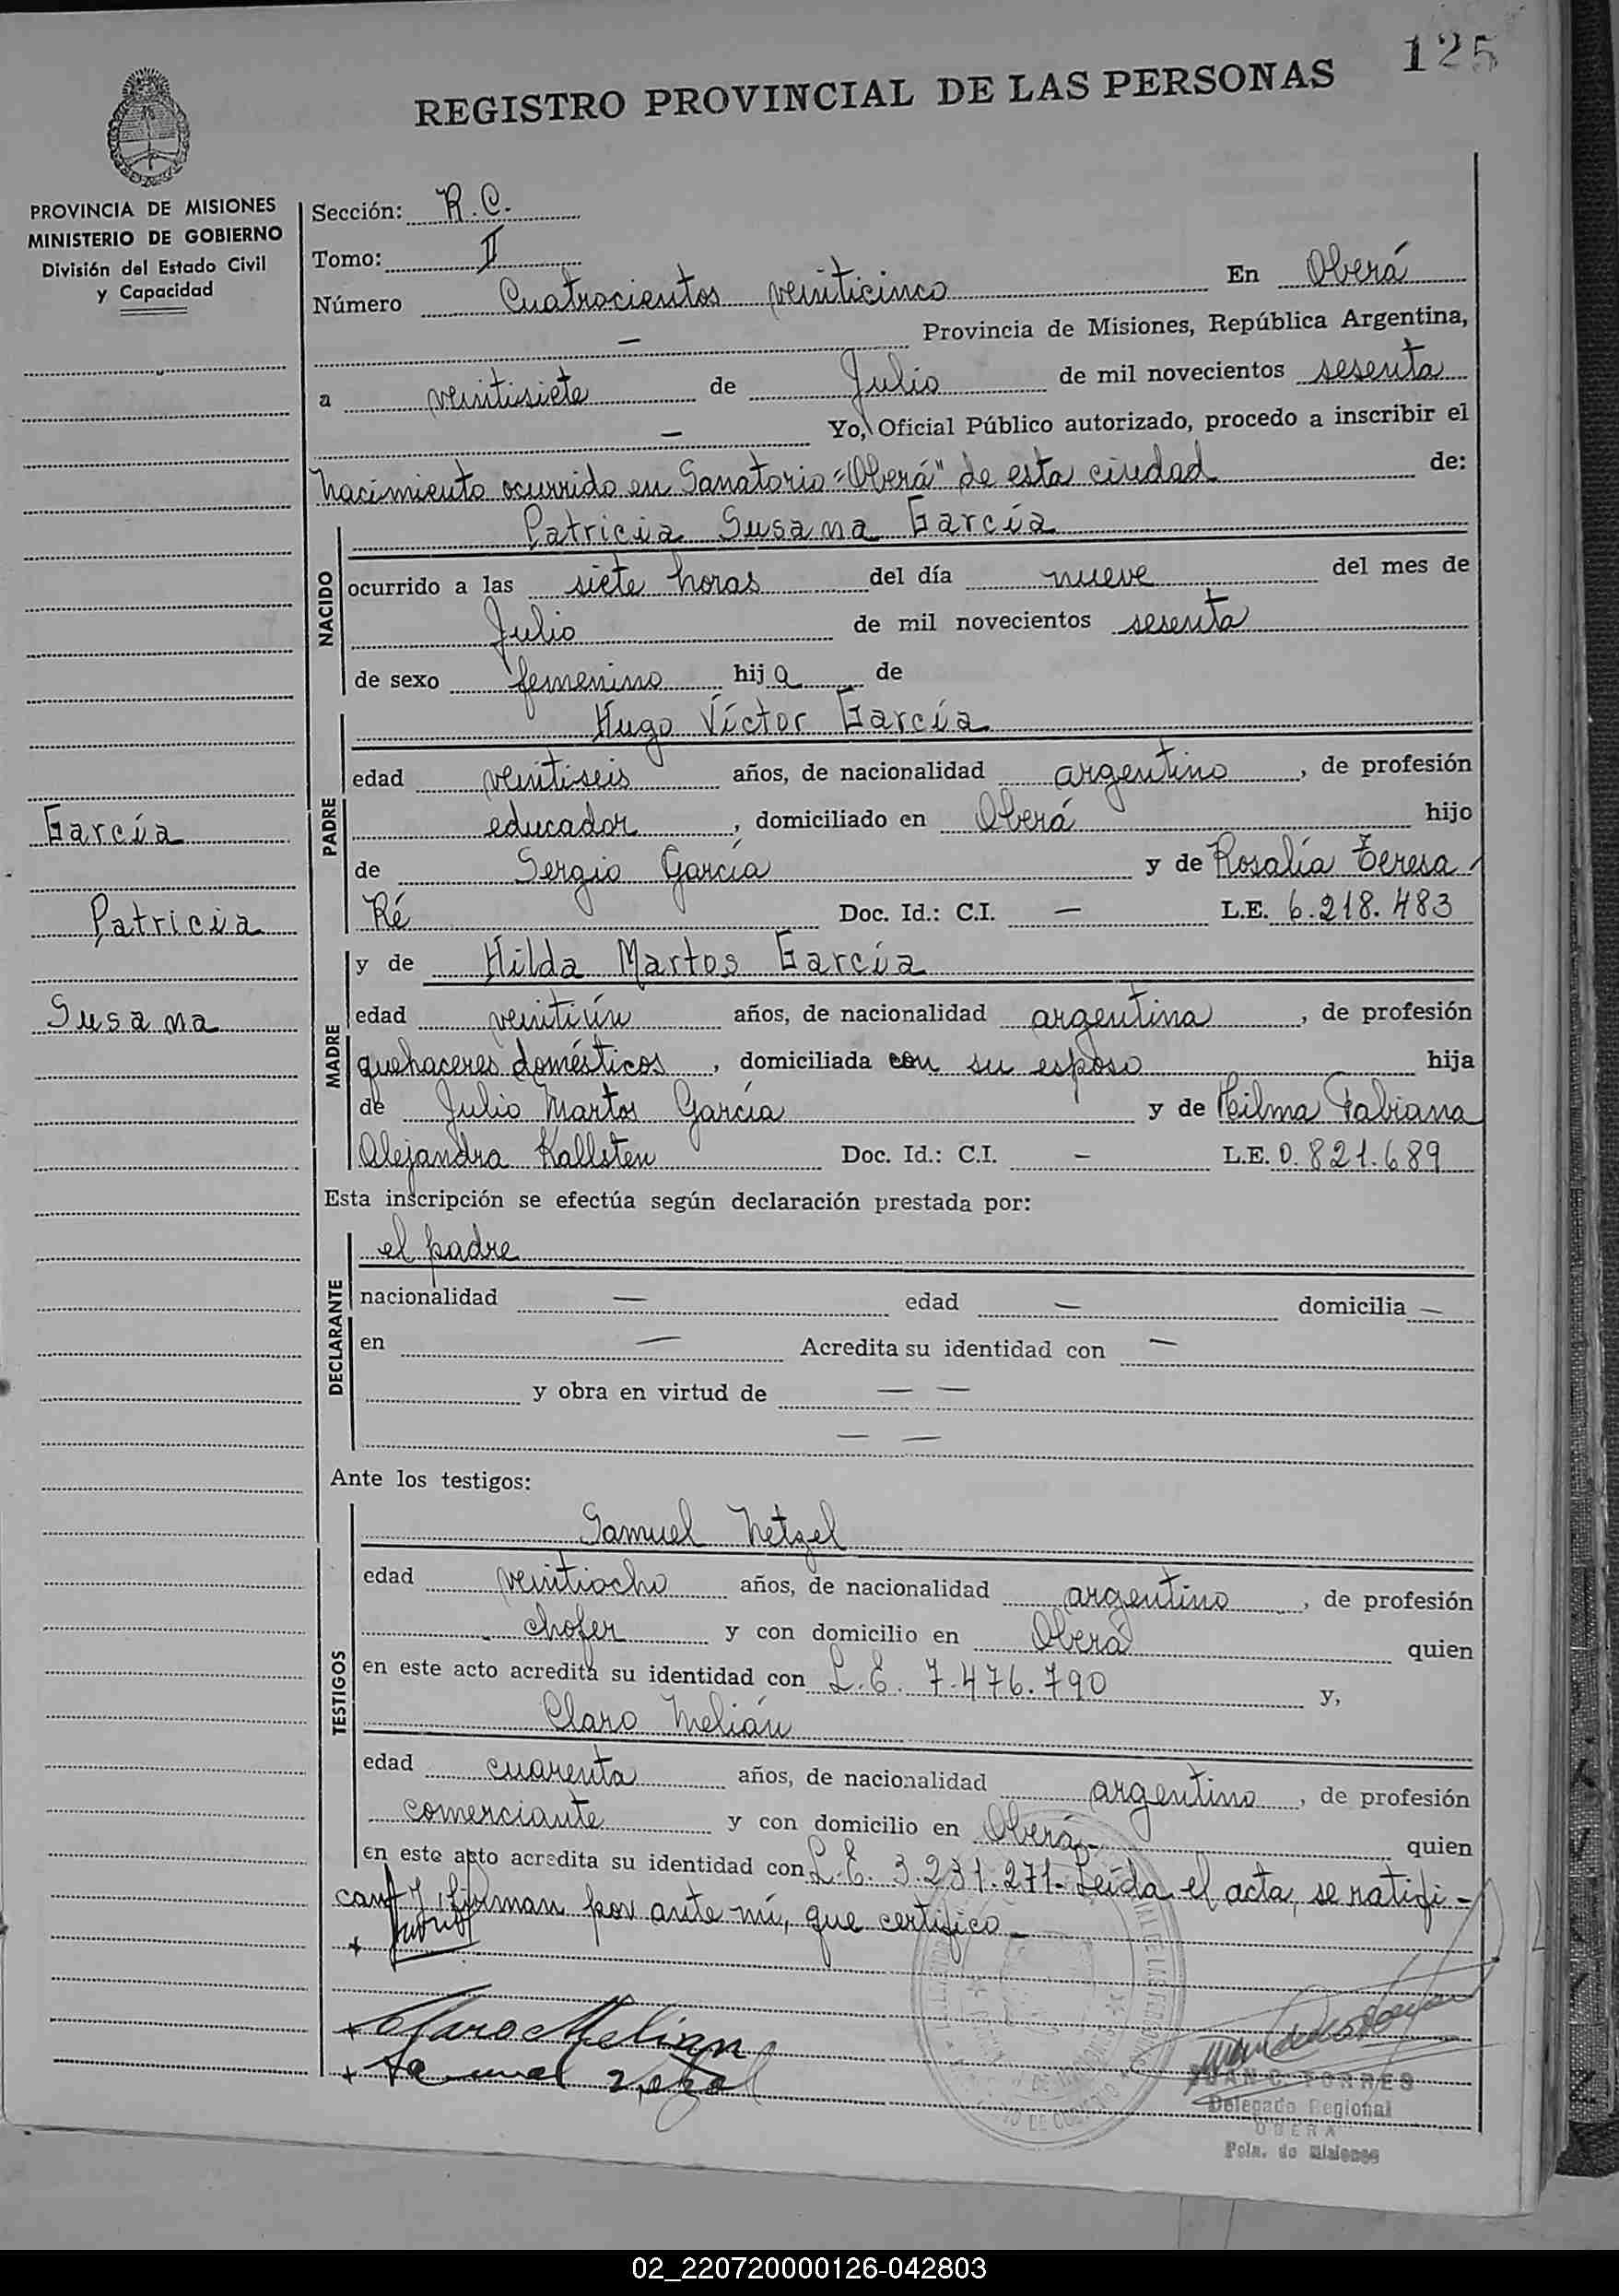 125
REGISTRO PROVINCIAL DE LAS PERSONAS
PROVINCIA DE MISIONES
MINISTERIO DE GOBIERNO
División del Estado Civil
y Capacidad
Sección: R.C.
Tomo: II
Número Cuatrocientos veinticinco En Oberá
— Provincia de Misiones, República Argentina,
a veintisiete de Julio de mil novecientos sesenta
— Yo, Oficial Público autorizado, procedo a inscribir el
nacimiento ocurrido en Sanatorio "Oberá" de esta ciudad de:
NACIDO
Patricia Susana García
ocurrido a las siete horas del día nueve del mes de
Julio de mil novecientos sesenta
de sexo femenino hija de
PADRE
Hugo Víctor García
edad veintiseis años, de nacionalidad argentino, de profesión
educador, domiciliado en Oberá hijo
de Sergio García y de Rosalía Teresa
Ré Doc. Id.: C.I. — L.E. 6.218.483
García
Patricia
Susana
MADRE
y de Hilda Martos García
edad veintiún años, de nacionalidad argentina, de profesión
quehaceres domésticos, domiciliada con su esposo hija
de Julio Martos García y de Hilma Fabiana
Alejandra Kallsten Doc. Id.: C.I. — L.E. 0.821.689
Esta inscripción se efectúa según declaración prestada por:
DECLARANTE
el padre
nacionalidad — edad — domicilia —
en — Acredita su identidad con —
y obra en virtud de — —
— —
Ante los testigos:
TESTIGOS
Samuel Netzel
edad veintiocho años, de nacionalidad argentino, de profesión
chofer y con domicilio en Oberá quien
en este acto acredita su identidad con L.E. 7.476.790 y,
Claro Melián
edad cuarenta años, de nacionalidad argentino, de profesión
comerciante y con domicilio en Oberá quien
en este acto acredita su identidad con L.E. 3.231.271- Leída el acta, se ratifi-
can y firman por ante mí, que certifico -
Claro Melian
Samuel
JUAN C. TORRES
Delegado Regional
OBERA
Pcia. de Misiones
02_220720000126-042803